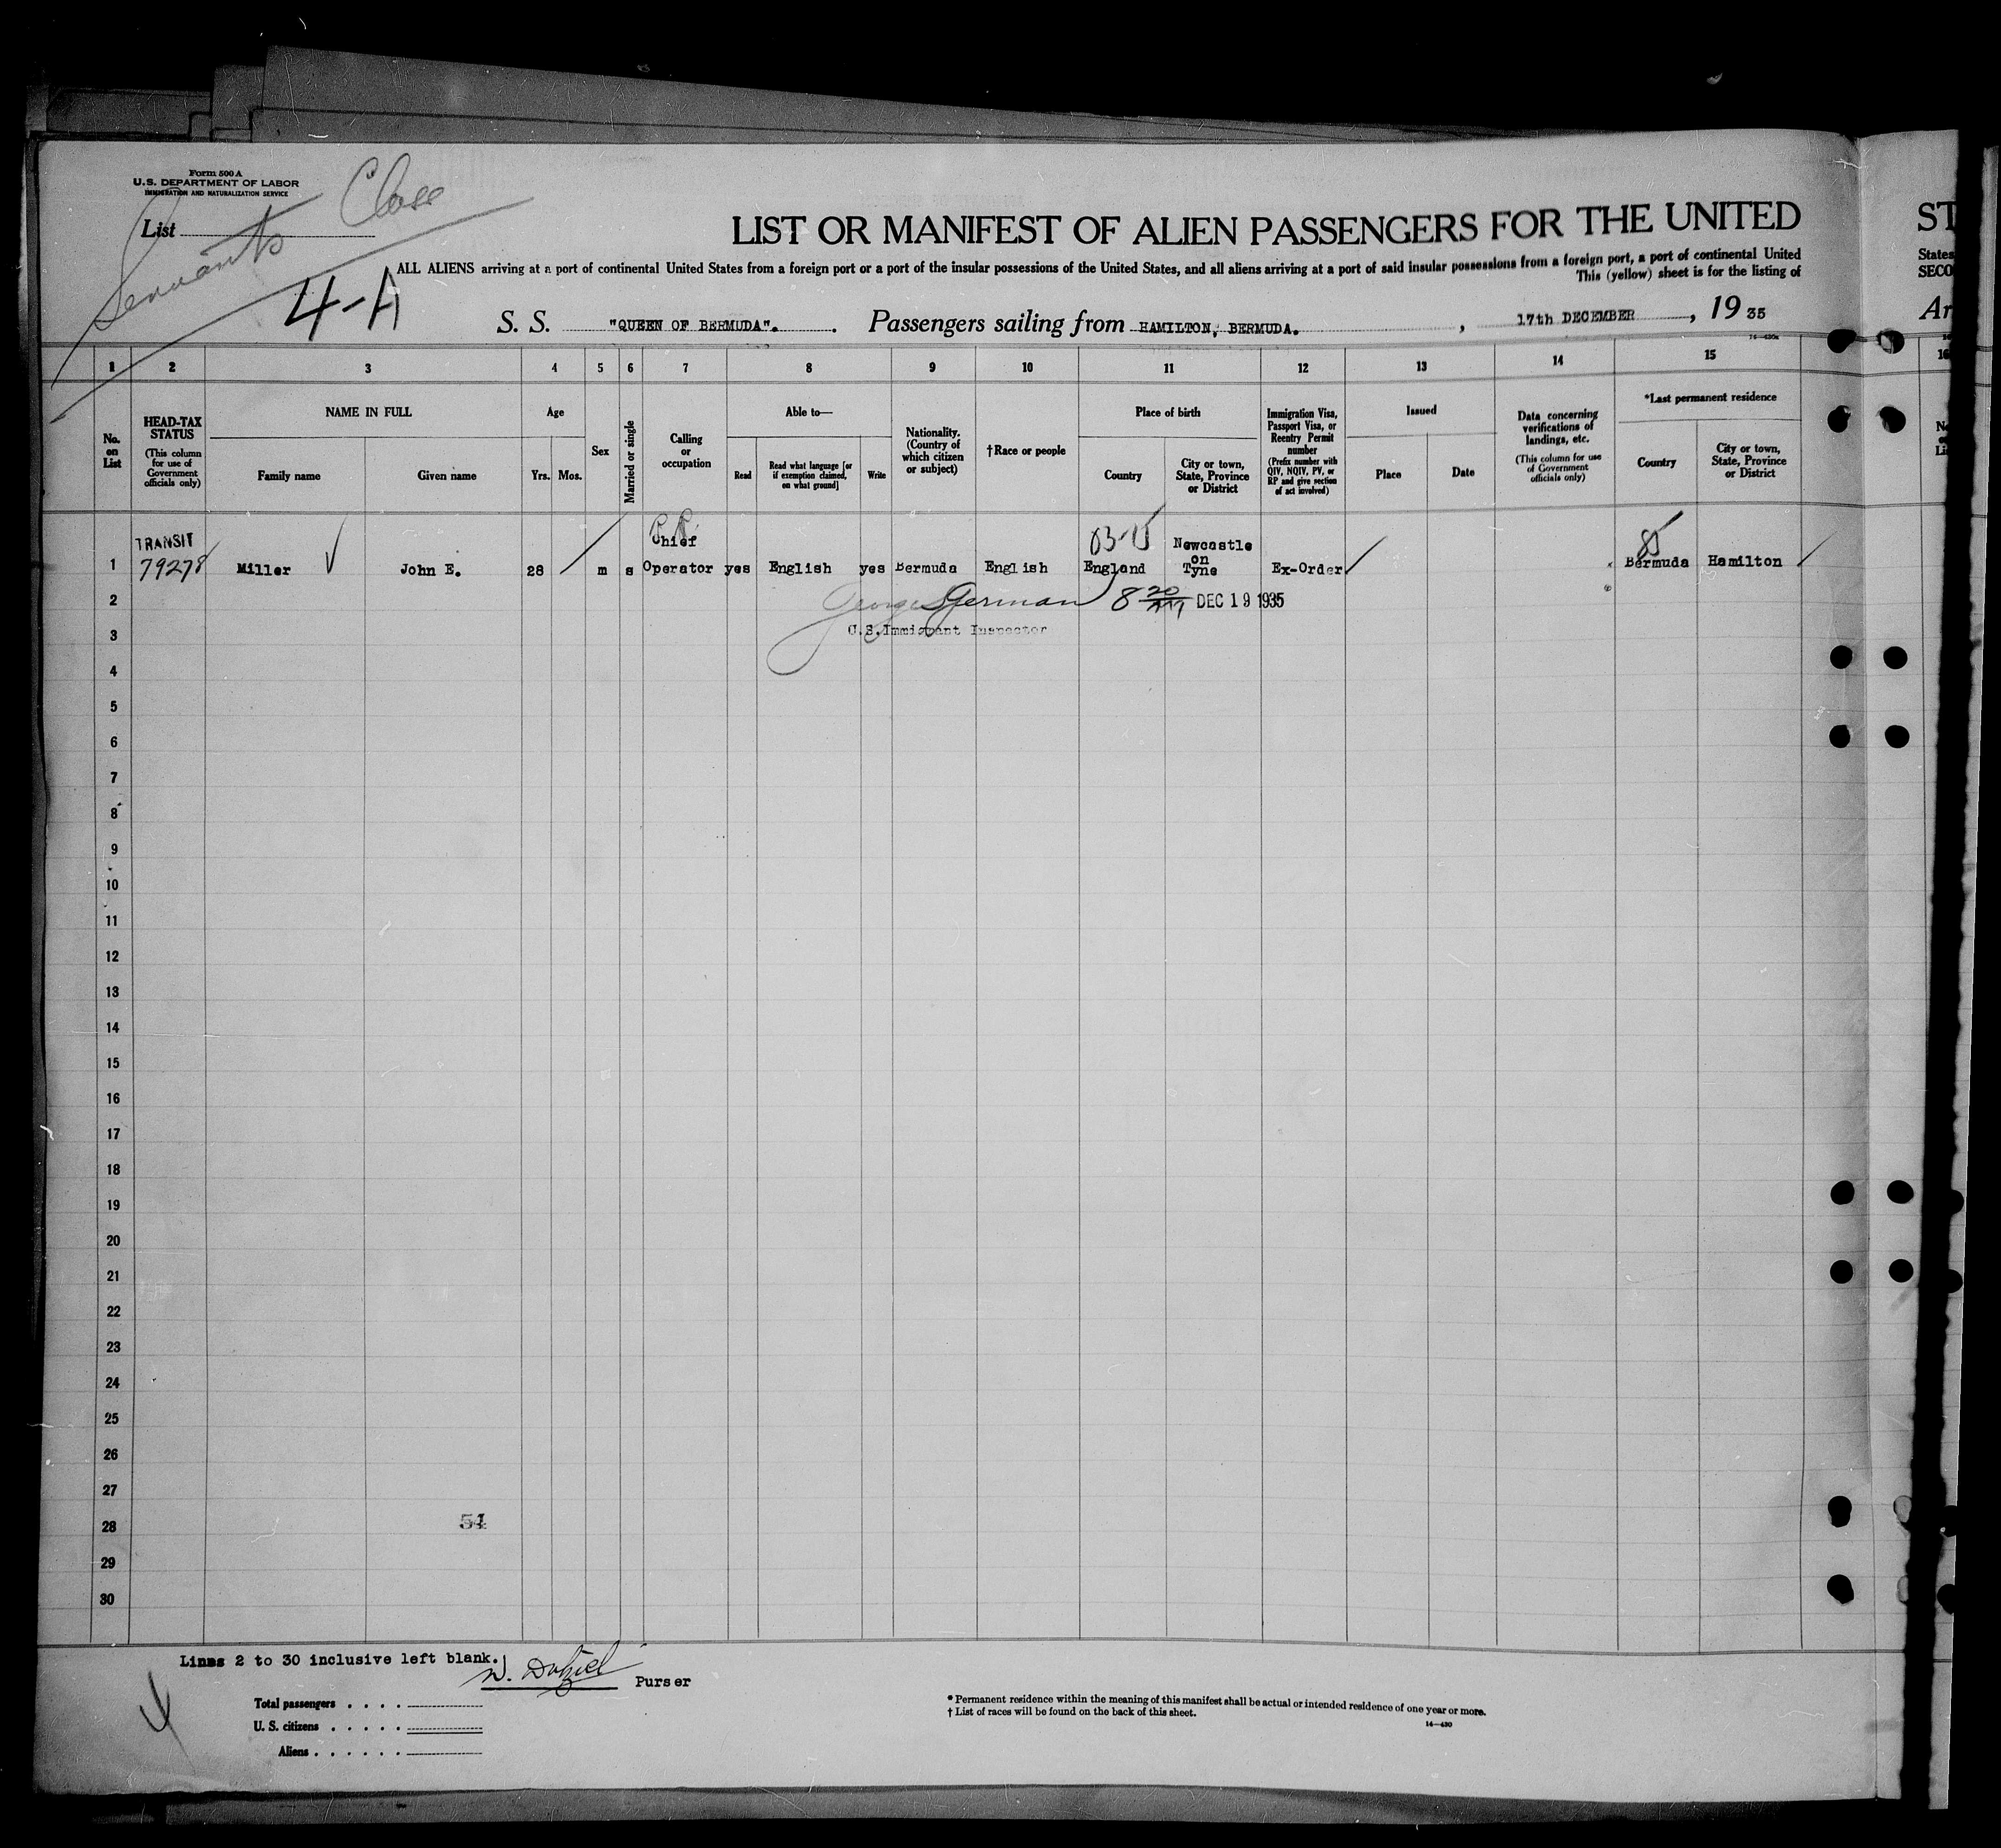 Form 500 A
U.S. DEPARTMENT OF LABOR
IMMIGRATION AND NATURALIZATION SERVICE
List
Servants Class
4-A
LIST OR MANIFEST OF ALIEN PASSENGERS FOR THE UNITED
ST
ALL ALIENS arriving at a port of continental United States from a foreign port or a port of the insular possessions of the United States, and all aliens arriving at a port of said insular possessions from a foreign port, a port of continental United
States
This (yellow) sheet is for the listing of
SECO
S. S. "QUEEN OF BERMUDA". Passengers sailing from HAMILTON, BERMUDA. , 17th DECEMBER , 19 35
Ar
1 2 3 4 5 6 7 8 9 10 11 12 13 14 15 16
No. on List
HEAD-TAX STATUS (This column for use of Government officials only)
NAME IN FULL
Family name
Given name
Age
Yrs.
Mos.
Sex
Married or single
Calling or occupation
Able to—
Read
Read what language [or if exemption claimed, on what ground]
Write
Nationality. (Country of which citizen or subject)
†Race or people
Place of birth
Country
City or town, State, Province or District
Immigration Visa, Passport Visa, or Reentry Permit number (Prefix number with QIV, NQIV, PV, or RP and give section of act involved)
Issued
Place
Date
Data concerning verifications of landings, etc. (This column for use of Government officials only)
*Last permanent residence
Country
City or town, State, Province or District
TRANSIT Chief 03-15 Newcastle on
1 79278 Miller John E. 28 m s Operator yes English yes Bermuda English England Tyne Ex-Order Bermuda Hamilton
2 8 20 AM DEC 19 1935
3 U.S.Immigrant Inspector
4
5
6
7
8
9
10
11
12
13
14
15
16
17
18
19
20
21
22
23
24
25
26
27
28
29
30
Lines 2 to 30 inclusive left blank.
Purser
Total passengers . . . .
U. S. citizens . . . . .
Aliens . . . . . .
* Permanent residence within the meaning of this manifest shall be actual or intended residence of one year or more.
† List of races will be found on the back of this sheet.
14—430